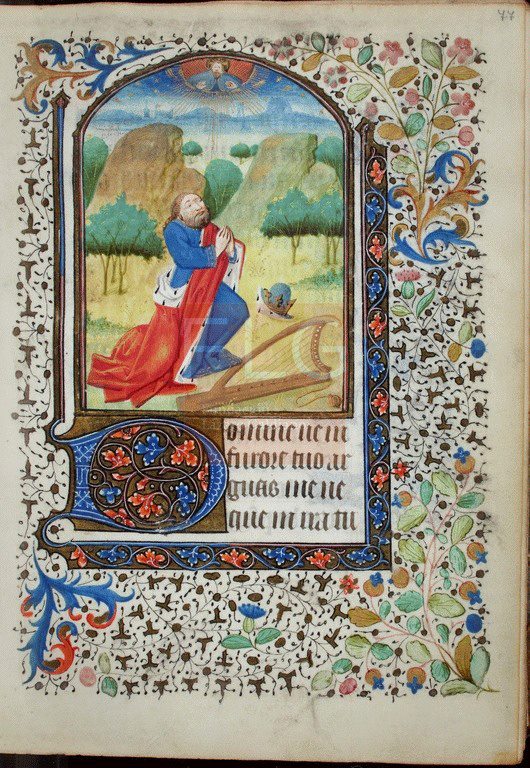 77
Domine ne in
furore tuo ar
guas me ne
que in ira tu